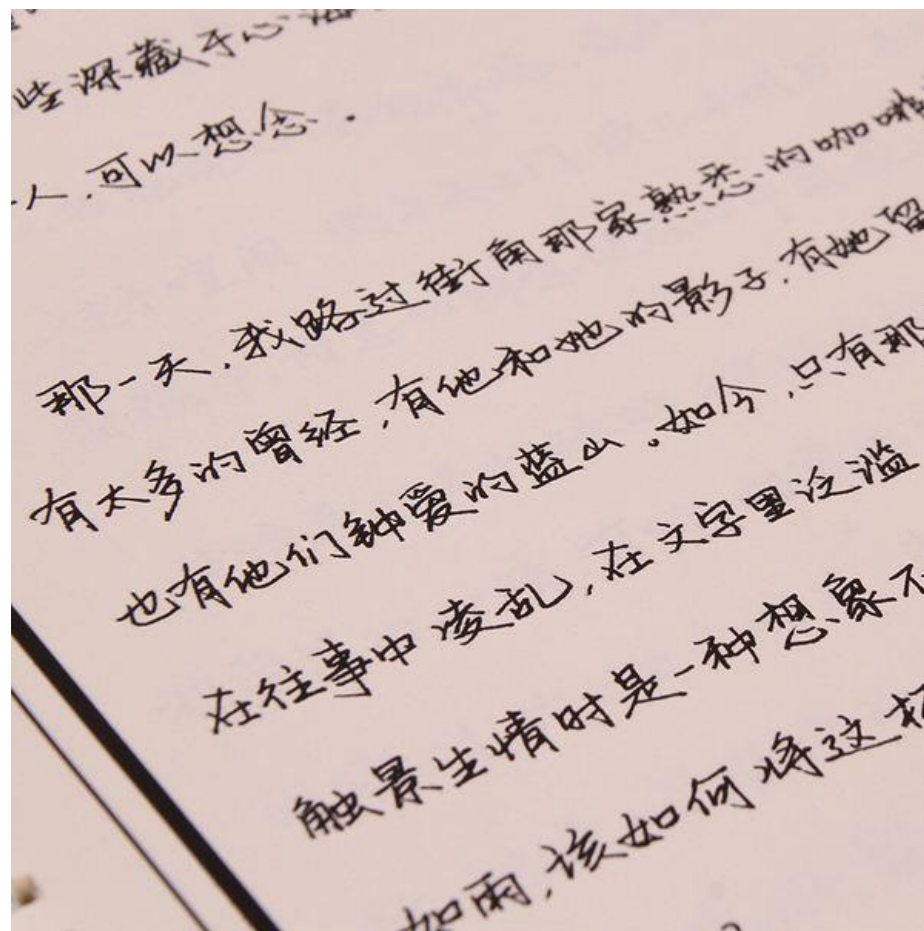 些深藏于心海
人,可以想念.
那一天,我路过街角那家熟悉的咖啡
有太多的曾经,有他和她的影子,有她留
也有他们钟爱的蓝山。如今,只有那
在往事中凌乱,在文字里泛滥
触景生情时是一种想象不
如雨,该如何将这